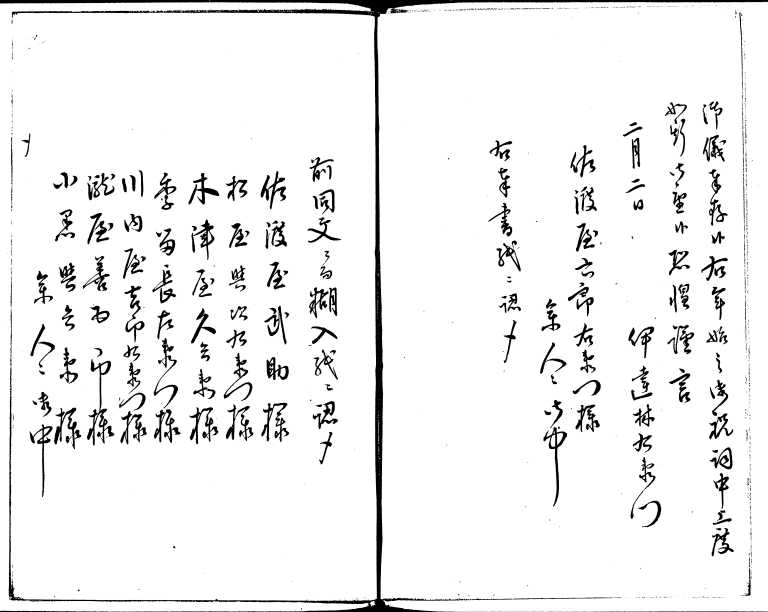 御儀奉存候右年始之御祝詞申上度
如斯御座候恐惶謹言
二月二日
伊達林右衛門
佐渡屋六郎右衛門様
参人々御中
右奉書紙ニ認〆
前同文ニ而糊入紙ニ認〆
佐渡屋武助様
松屋與次右衛門様
木津屋久兵衛様
季富長左衛門様
川内屋吉郎右衛門様
瀧屋善五郎様
小黒與兵衛様
参人々御中
〆